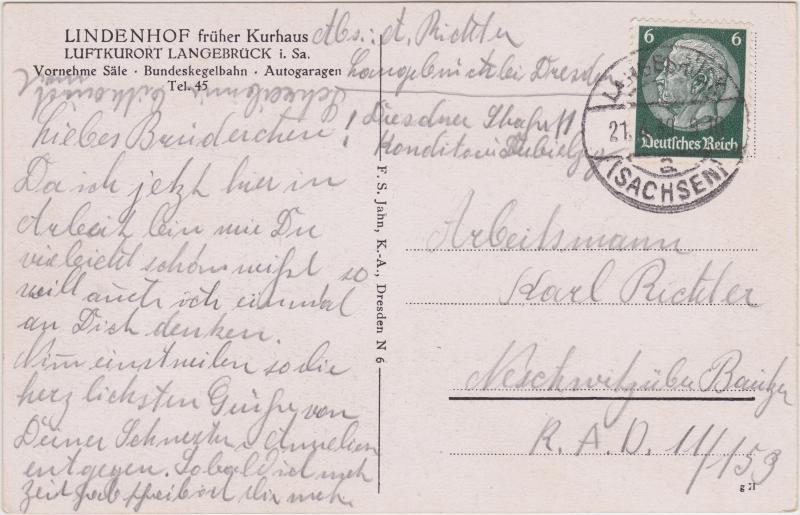 LINDENHOF früher Kurhaus
LUFTKURORT LANGEBRÜCK i. Sa.
Vornehme Säle · Bundeskegelbahn · Autogaragen
Tel. 45
Liebes Brüderchen!
Da ich jetzt hier in
Arbeit bin wie Du
vieleicht schon weißt so
will auch ich einmal
an Dich denken.
Nim einstweilen so die
herzlichsten Grüße von
Deiner Schwester Annelies
entgegen. Sobald ich mehr
Zeit hab schreib ich Dir mehr.
F. S. Jahn, K.-A., Dresden N 6
Abs: A. Richter
Langebrück bei Dresden
Dresdner Straße 11
Konditorei
6 6
Deutsches Reich
21.
a
(SACHSEN)
Arbeitsmann
Karl Richter
Neschwitz über Bautzen
R. A. D. 11/153